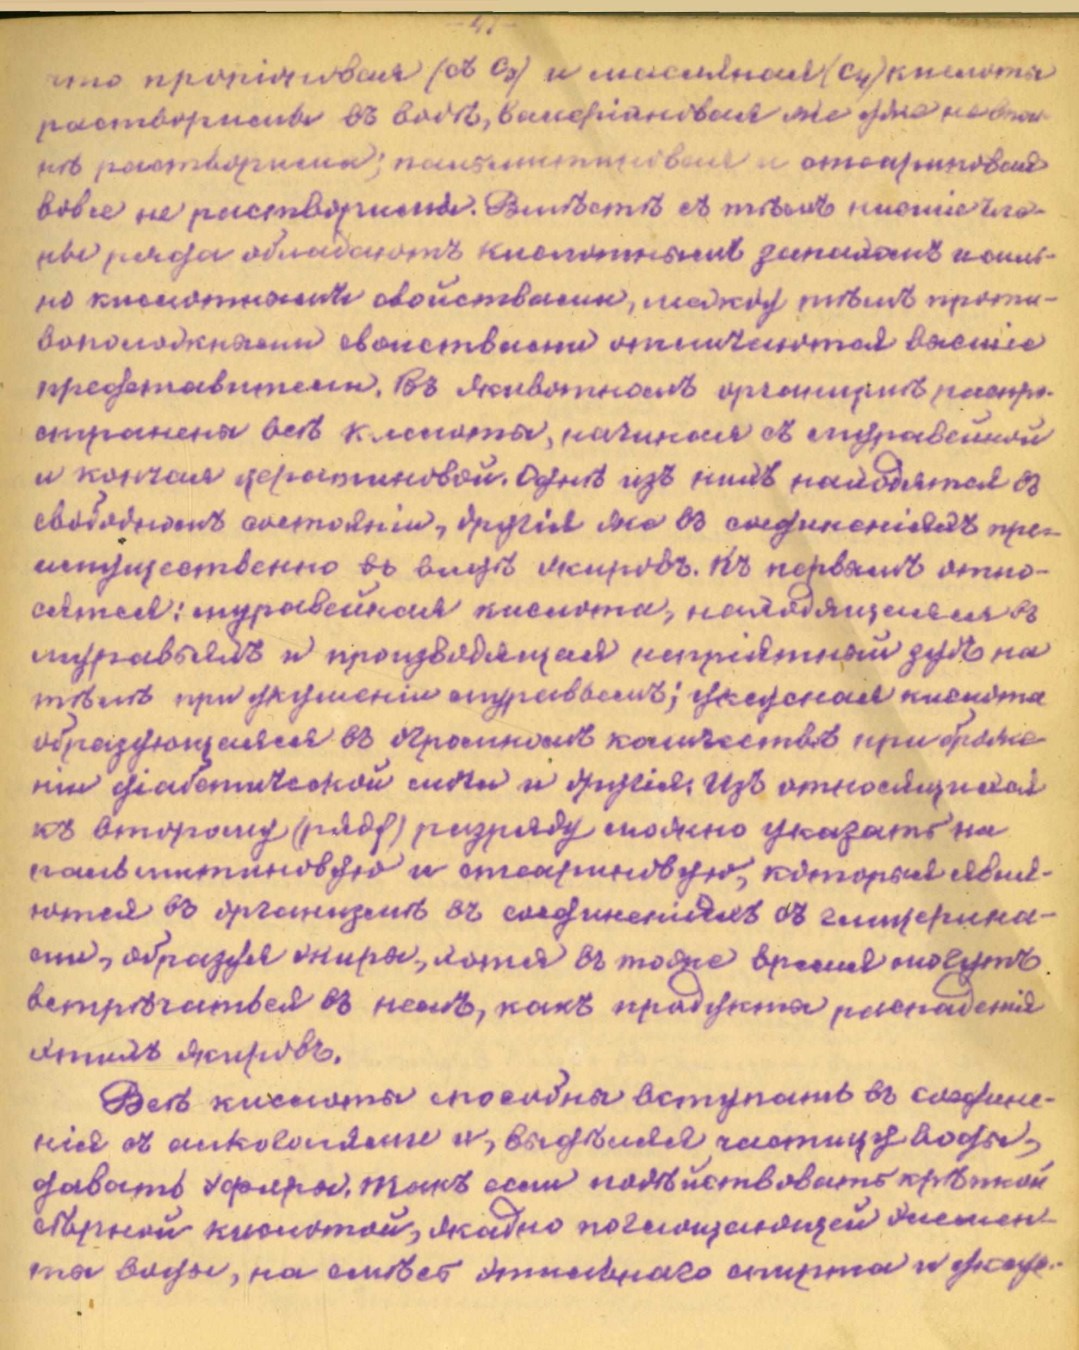 что пропіоновая (съ C3) и масляная (C4) кислоты
растворимы въ водѣ, валеріановая же уже не впол-
нѣ растворима; пальмитиновая и стеариновая
вовсе не растворимы. Вмѣстѣ съ тѣмъ низшіе чле-
ны ряда обладаютъ кислотнымъ запахомъ и силь-
но кислотными свойствами, между тѣмъ проти-
воположными свойствами отличаются высшіе
представители. Въ животномъ организмѣ распро-
странены всѣ кислоты, начиная съ муравейной
и кончая церотиновой. Однѣ изъ нихъ находятся въ
свободномъ состояніи, другія же въ соединеніяхъ пре-
имущественно въ видѣ жировъ. Къ первымъ отно-
сятся: муравейная кислота, находящаяся въ
муравьяхъ и производящая непріятный зудъ на
тѣлѣ при укушеніи муравьемъ; уксусная кислота
образующаяся въ огромномъ количествѣ при броже-
ніи діабетической мочи и другія. Изъ относящихся
къ второму (ряду) разряду можно указать на
пальмитиновую и стеариновую, которыя явля-
ются въ организмѣ въ соединеніяхъ съ глицерина-
ми, образуя жиры, хотя въ тоже время могутъ
встрѣчаться въ немъ, какъ продукты распаденія
этихъ жировъ.
Всѣ кислоты способны вступать въ соедине-
нія съ алкоголями и, выдѣляя частицу воды,
давать эфиры. Такъ если подѣйствовать крѣпкой
сѣрной кислотой, жадно поглощающей элемен-
ты воды, на смѣсь этильнаго спирта и уксус-